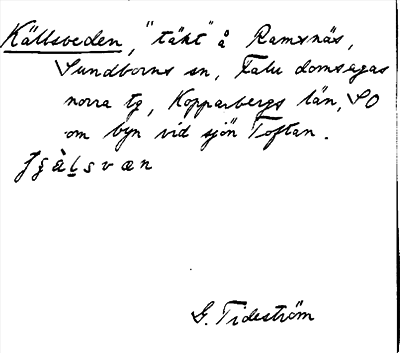 Källsveden, "täkt" å Ramsnäs,
Sundborns sn, Falu domsagas
norra tg, Kopparbergs län, SO
om byn vid sjön Toftan.
G. Tideström